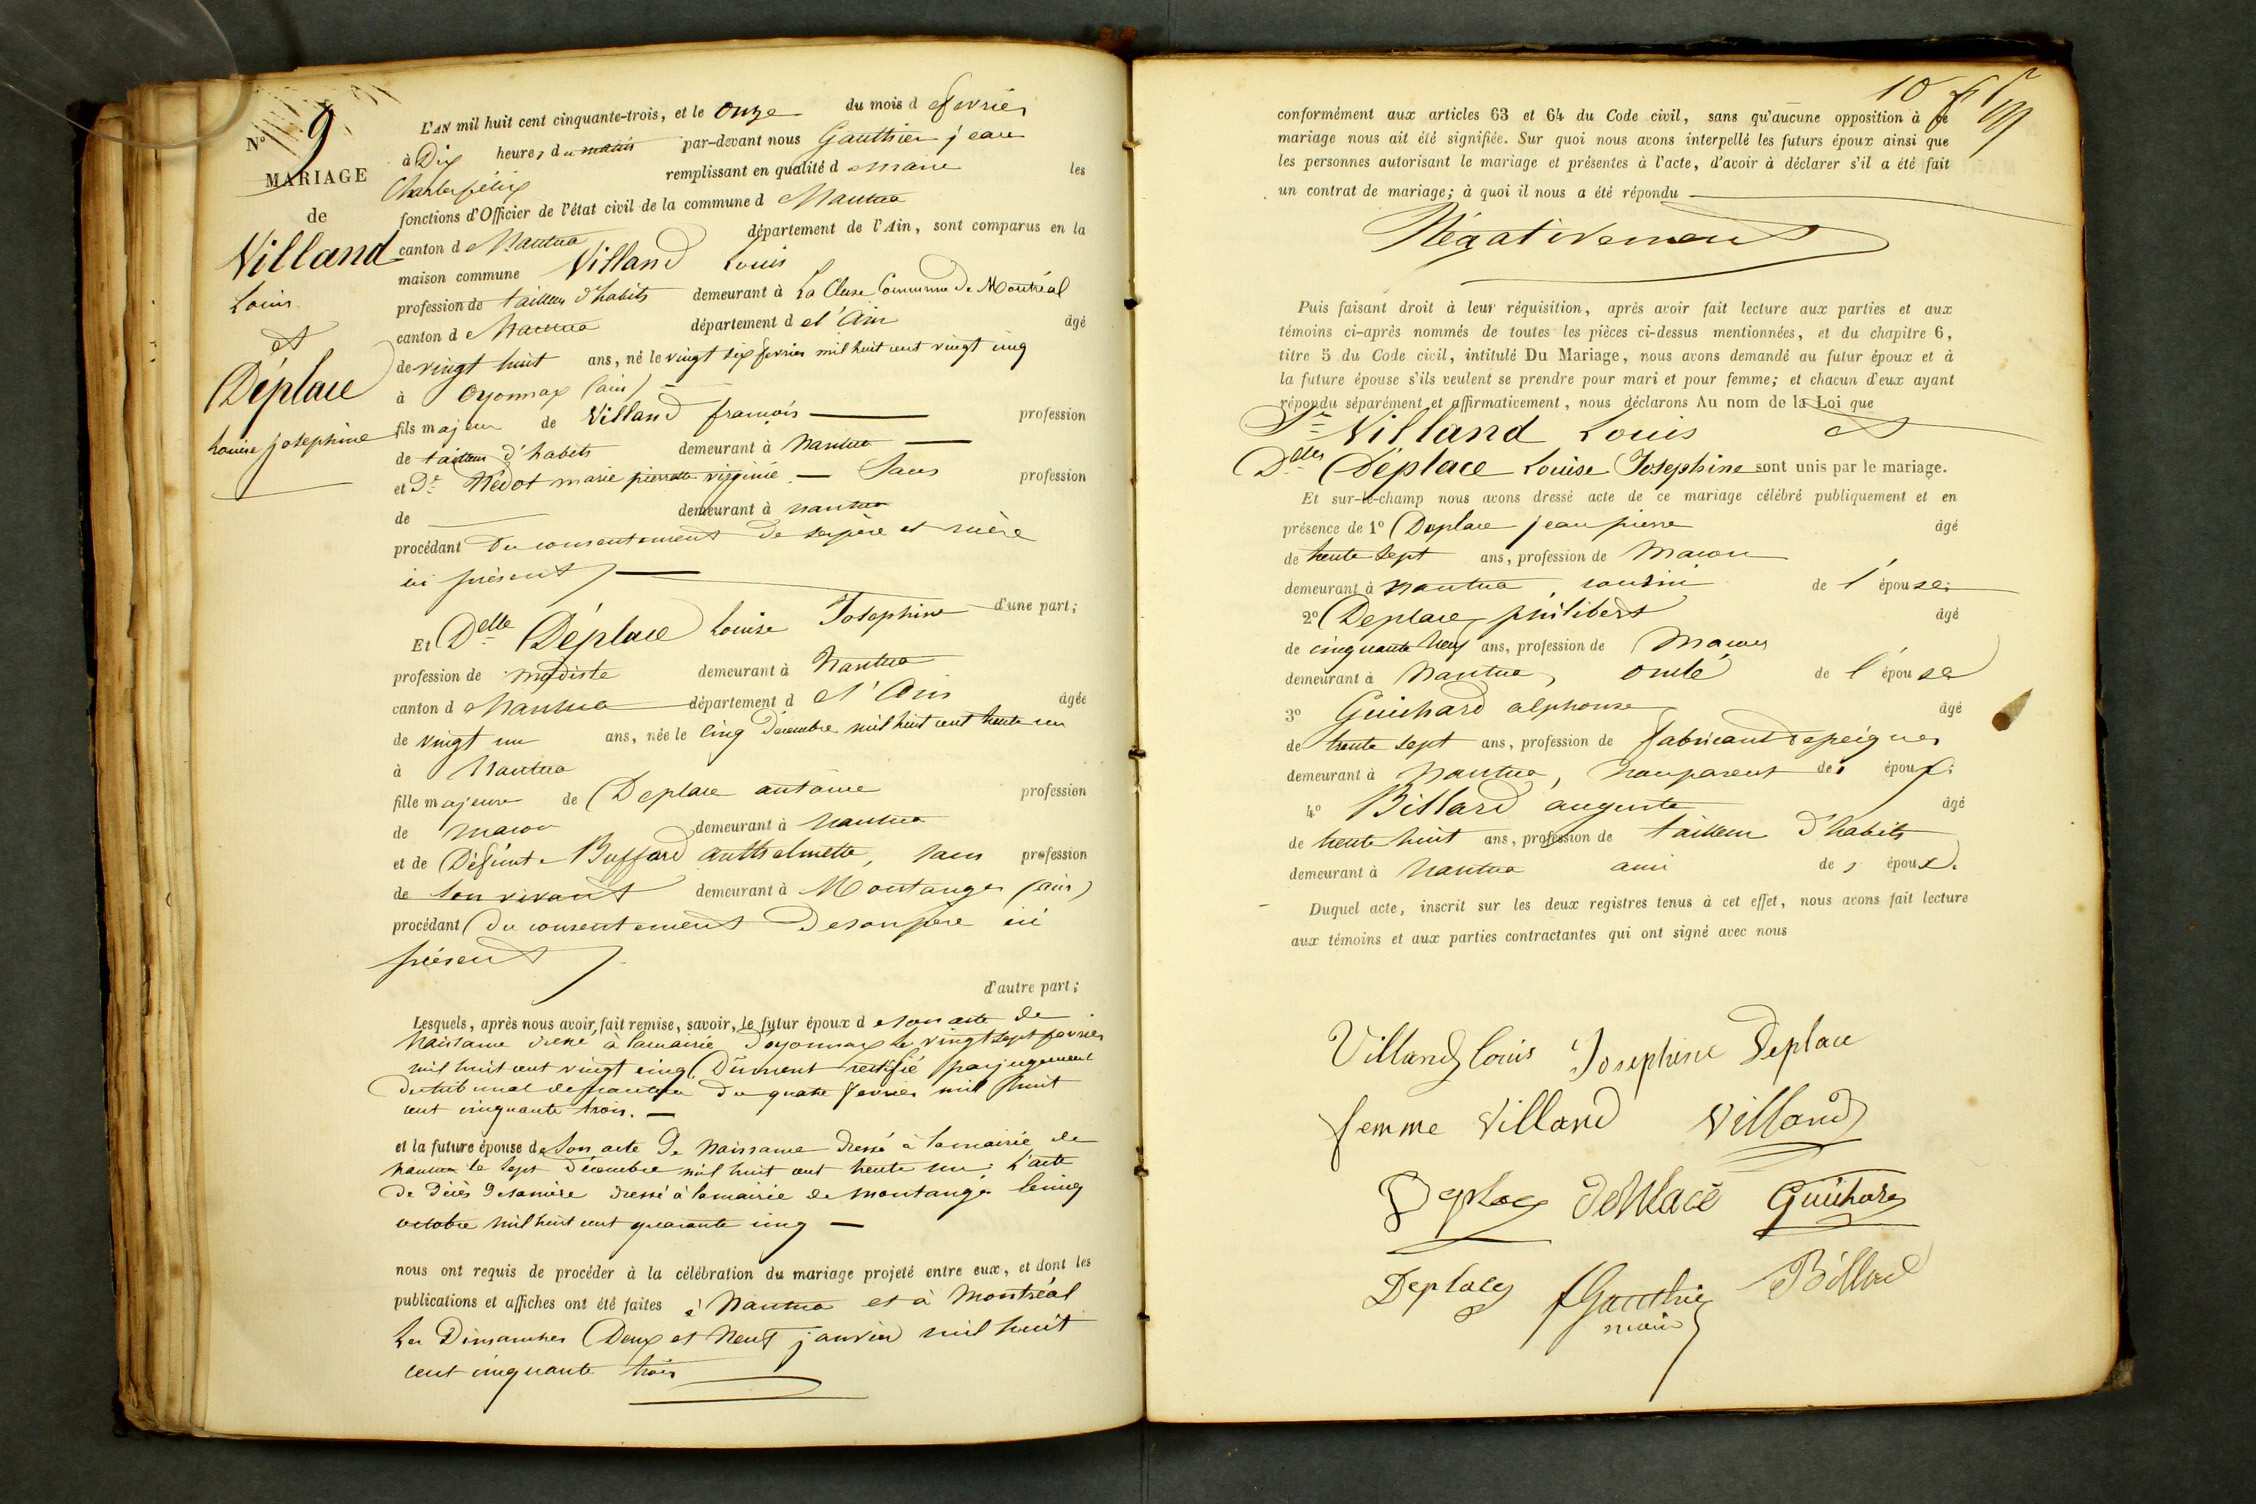 N° 9
MARIAGE
de
Villand
Louis
et
Déplace
Louise Josephine
L'AN mil huit cent cinquante-trois, et le onze du mois de fevrier
à Dix heures du matin par-devant nous Gauthier jean
Charles félix remplissant en qualité de maire les
fonctions d'Officier de l'état civil de la commune de Nantua
canton de Nantua département de l'Ain, sont comparus en la
maison commune Villand Louis
profession de tailleur d'habits demeurant à La Cluse Commune de Montréal
canton de Nantua département de l'Ain âgé
de vingt huit ans, né le vingt six fevrier mil huit cent vingt cinq
à Oyonnax (ain)
fils majeur de Villand françois profession
de tailleur d'habits demeurant à Nantua
et De Nédot marie pierrette virginie — Sans profession
de demeurant à nantua
procédant Du consentement de ses père et mère
ici présents
d'une part;
Et Delle Déplace Louise Josephine
profession de modiste demeurant à Nantua
canton de Nantua département de l'Ain âgée
de vingt un ans, née le cinq Décembre mil huit cent trente un
à Nantua
fille majeure de Deplace antoine profession
de macon demeurant à Nantua
et de Défunte Buffard anthelmette, sans profession
de son vivant demeurant à Montanges (ain)
procédant Du consentement de son père ici
présent
d'autre part;
Lesquels, après nous avoir fait remise, savoir, le futur époux de son acte de
Naissance dressé à la mairie d'oyonnax le vingt sept fevrier
mil huit cent vingt cinq Dûment rectifié par jugement
du tribunal de nantua du quatre fevrier mil huit
cent cinquante trois. —
et la future épouse de Son acte de Naissance dressé à la mairie de
nantua le sept Décembre mil huit cent trente un; L'acte
de décès de sa mère dressé à la mairie de montanges le cinq
octobre mil huit cent quarante cinq —
nous ont requis de procéder à la célébration du mariage projeté entre eux, et dont les
publications et affiches ont été faites à Nantua et à Montréal
Les Dimanches Deux et Neuf janvier mil huit
cent cinquante trois
10
conformément aux articles 63 et 64 du Code civil, sans qu'aucune opposition à ce
mariage nous ait été signifiée. Sur quoi nous avons interpellé les futurs époux ainsi que
les personnes autorisant le mariage et présentes à l'acte, d'avoir à déclarer s'il a été fait
un contrat de mariage; à quoi il nous a été répondu
Négativement
Puis faisant droit à leur réquisition, après avoir fait lecture aux parties et aux
témoins ci-après nommés de toutes les pièces ci-dessus mentionnées, et du chapitre 6,
titre 5 du Code civil, intitulé Du Mariage, nous avons demandé au futur époux et à
la future épouse s'ils veulent se prendre pour mari et pour femme; et chacun d'eux ayant
répondu séparément et affirmativement, nous déclarons Au nom de la Loi que
Sr Villand Louis et
Delles Déplace Louise Josephine sont unis par le mariage.
Et sur-le-champ nous avons dressé acte de ce mariage célébré publiquement et en
présence de 1° Deplace jean pierre âgé
de trente sept ans, profession de Macon
demeurant à nantua cousin de l'épouse;
2° Deplace philibert âgé
de cinquante neuf ans, profession de Macon
demeurant à Nantua, oncle de l'épouse
3° Guichard alphonse âgé
de trente sept ans, profession de fabricant de peignes
demeurant à Nantua, non parent des époux;
4° Billard auguste âgé
de trente huit ans, profession de tailleur d'habits
demeurant à Nantua ami des époux.
Duquel acte, inscrit sur les deux registres tenus à cet effet, nous avons fait lecture
aux témoins et aux parties contractantes qui ont signé avec nous
Villand louis Josephine Deplace
femme Villand Villand
Deplace Deplace Guichard
Deplace Gauthier Billard
maire